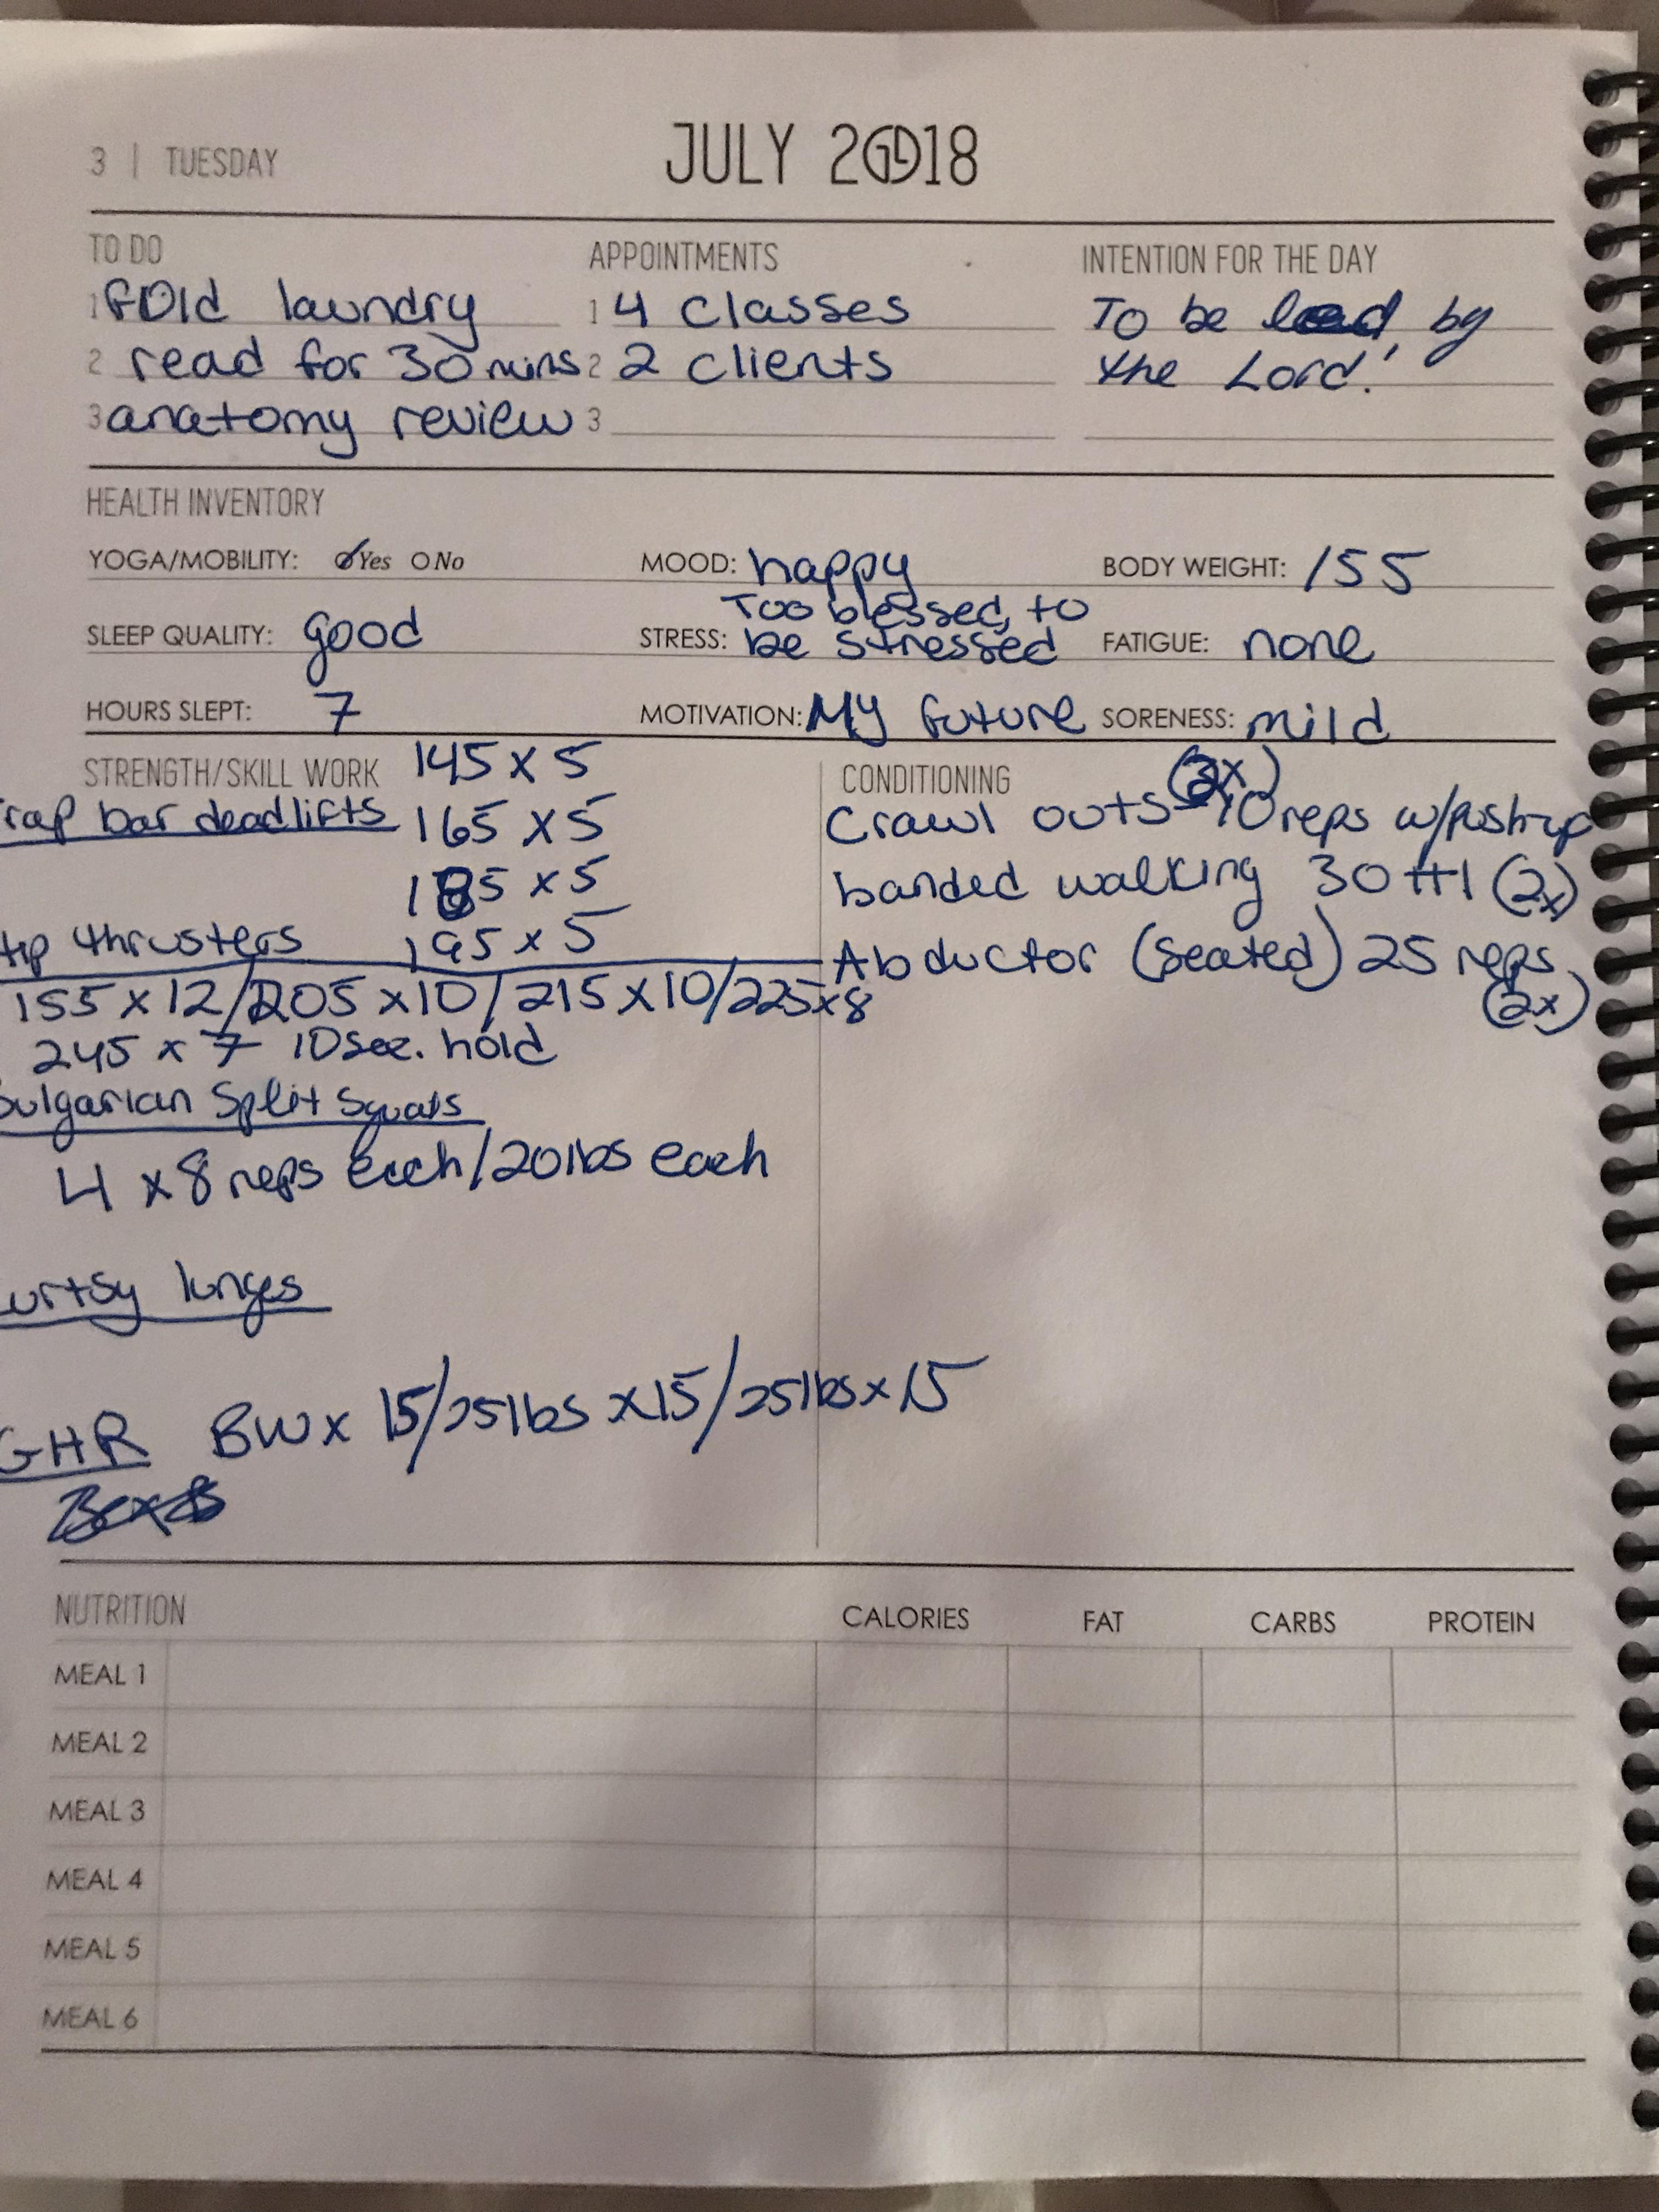 3 | TUESDAY
JULY 2018
TO DO
1 Fold laundry
2 read for 30 mins
3 anatomy review
APPOINTMENTS
1 4 classes
2 2 clients
3
INTENTION FOR THE DAY
To be lead by
the Lord!
HEALTH INVENTORY
YOGA/MOBILITY: Yes No
MOOD: happy
BODY WEIGHT: 155
SLEEP QUALITY: good
STRESS: Too blessed to
be stressed
FATIGUE: none
HOURS SLEPT: 7
MOTIVATION: My future
SORENESS: mild
STRENGTH/SKILL WORK 145 x 5
rap bar deadlifts 165 x 5
185 x 5
ip thrusters 195 x 5
155 x 12/205 x 10/215 x 10/225 x 8
245 x 7 10 sec. hold
Bulgarian Split Squats
4 x 8 reps each/20lbs each
urtsy lunges
GHR BW x 15/25lbs x 15/25lbs x 15
CONDITIONING
(2x)
Crawl outs - 10 reps w/pushup
banded walking 30 (2x)
Abductor (seated) 25 reps
(2x)
NUTRITION CALORIES FAT CARBS PROTEIN
MEAL 1
MEAL 2
MEAL 3
MEAL 4
MEAL 5
MEAL 6